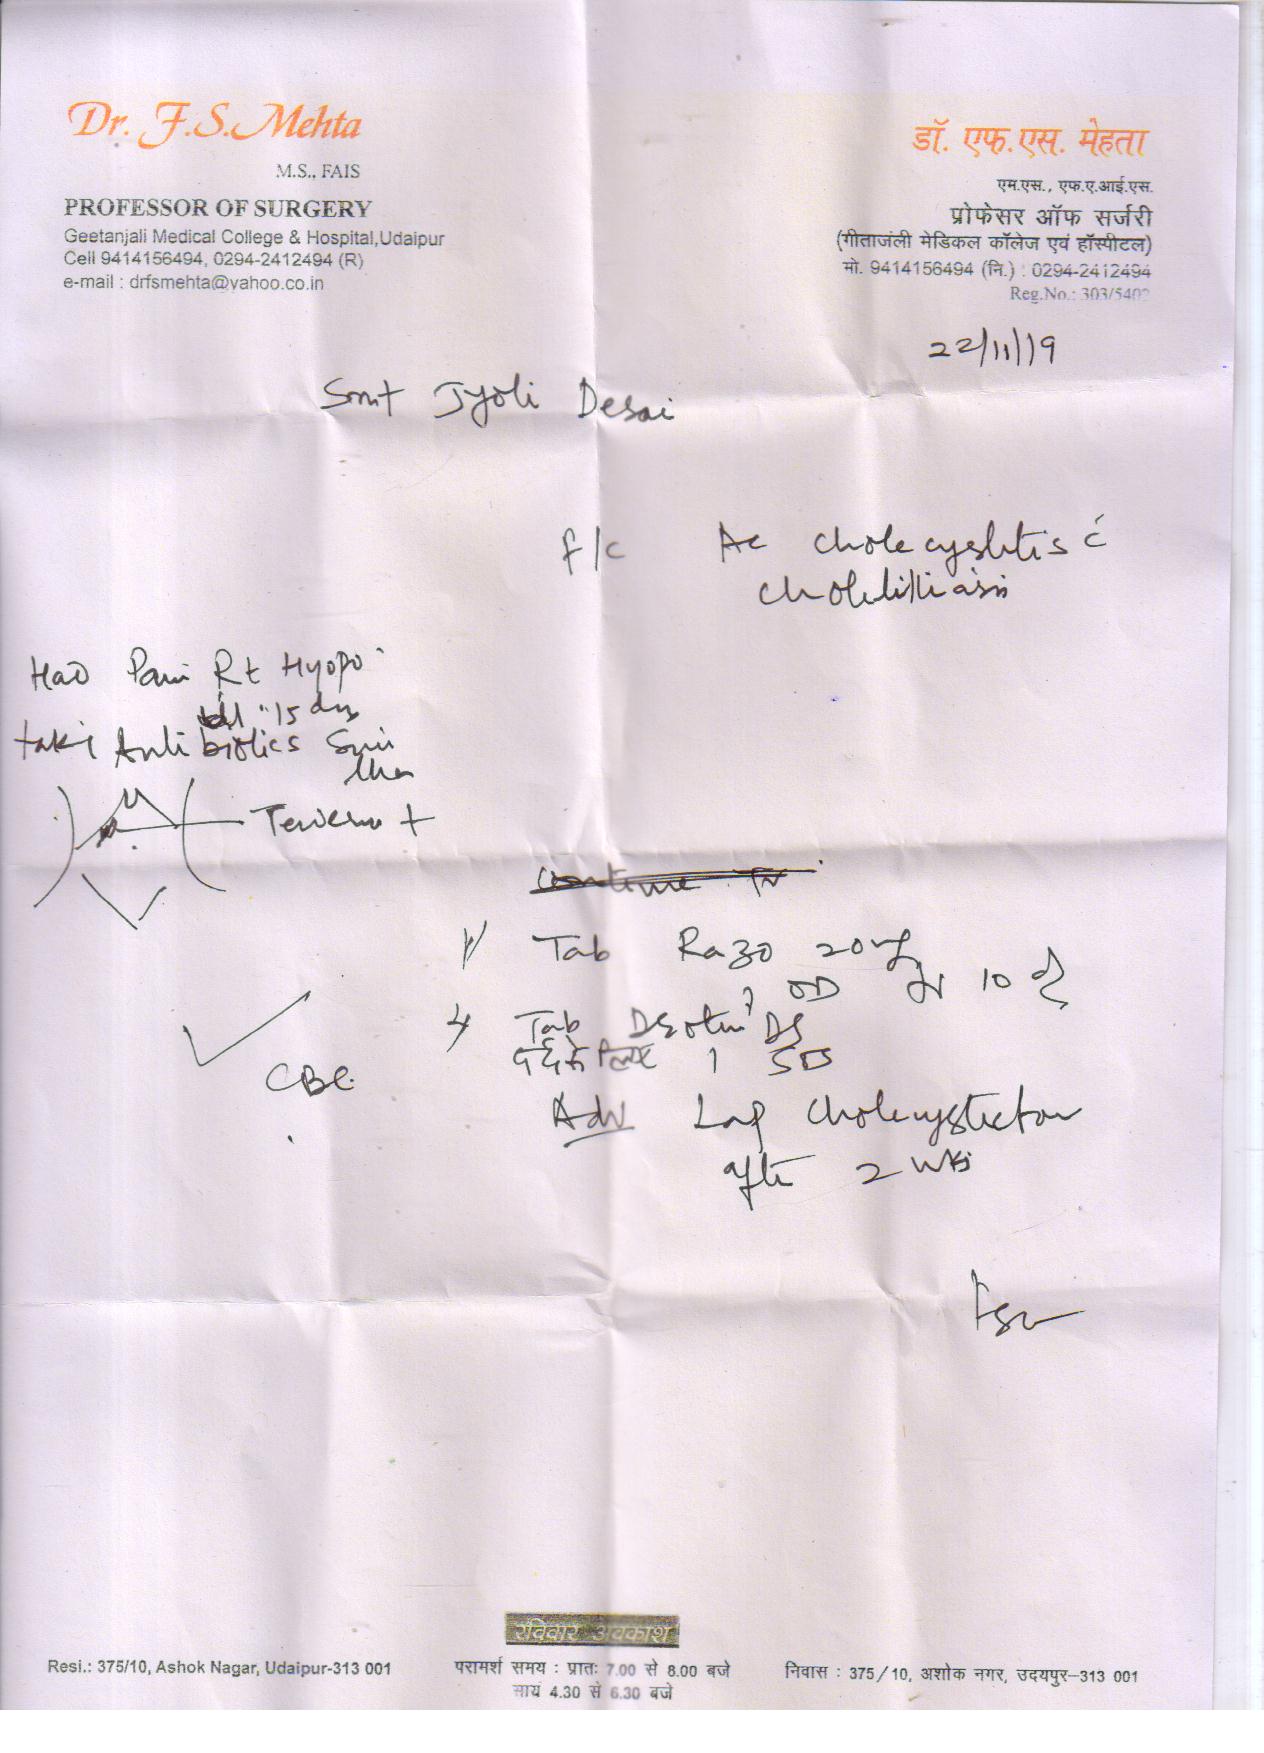 Dr. F.S. Mehta
M.S., FAIS
PROFESSOR OF SURGERY
Geetanjali Medical College & Hospital,Udaipur
Cell 9414156494, 0294-2412494 (R)
e-mail : drfsmehta@yahoo.co.in
डॉ. एफ.एस. मेहता
एम.एस., एफ.ए.आई.एस.
प्रोफेसर ऑफ सर्जरी
(गीताजंली मेडिकल कॉलेज एवं हॉस्पीटल)
मो. 9414156494 (नि.) : 0294-2412494
Reg.No.: 303/5402
22/11/19
Smt Jyoti Desai
f/c Ac cholecystitis c̄
cholelithiasis
Had Pain Rt Hypo
15 days
taking Antibiotics Since
then
Tenderness +
Continue
1) Tab Razo 20mg
1 OD 10
Tab DS
दर्द के लिए 1 SOS
CBC
Adv Lap cholecystectomy
after 2 wks
रविवार अवकाश
Resi.: 375/10, Ashok Nagar, Udaipur-313 001
परामर्श समय : प्रातः 7.00 से 8.00 बजे
सायं 4.30 से 6.30 बजे
निवास : 375/10, अशोक नगर, उदयपुर–313 001